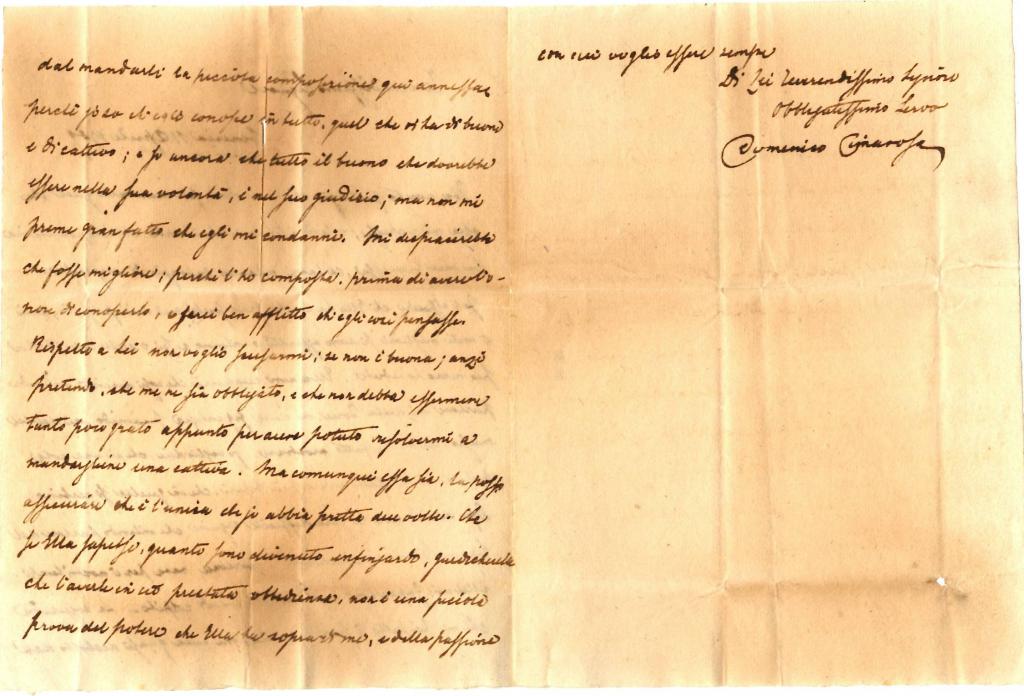 dal mandarli la piccola composizione qui annessa
perchè io so ch'egli conosce in tutto, quel che vi ha di buono
e di cattivo; e so ancora che tutto il buono che dovrebbe
essere nella sua volontà, è nel suo giudizio; ma non mi
preme gran fatto che egli mi condanni. Mi dispiacerebbe
che fosse migliore; perchè l'ho composta, prima di avere l'o-
nore di conoscerlo, e sarei ben afflitto ch'egli così pensasse.
Rispetto a Lei non voglio scusarmi; se non è buona; anzi
pretendo, che me ne sia obbligato, e che non debba essermene
tanto poco grato appunto per avere potuto risolvermi a
mandargliene una cattiva. Ma comunque essa sia, la posso
assicurare che è l'unica che io abbia fatta due volte. Che
se Ella sapesse, quanto sono divenuto infingardo, giudicherebbe
che l'averle in ciò prestata obbedienza, non è una piccola
prova del potere che Ella ha sopra di me, e della passione
con cui voglio essere sempre
Di Lei Reverendissimo Signore
Obbligatissimo Servo
Domenico Cimarosa